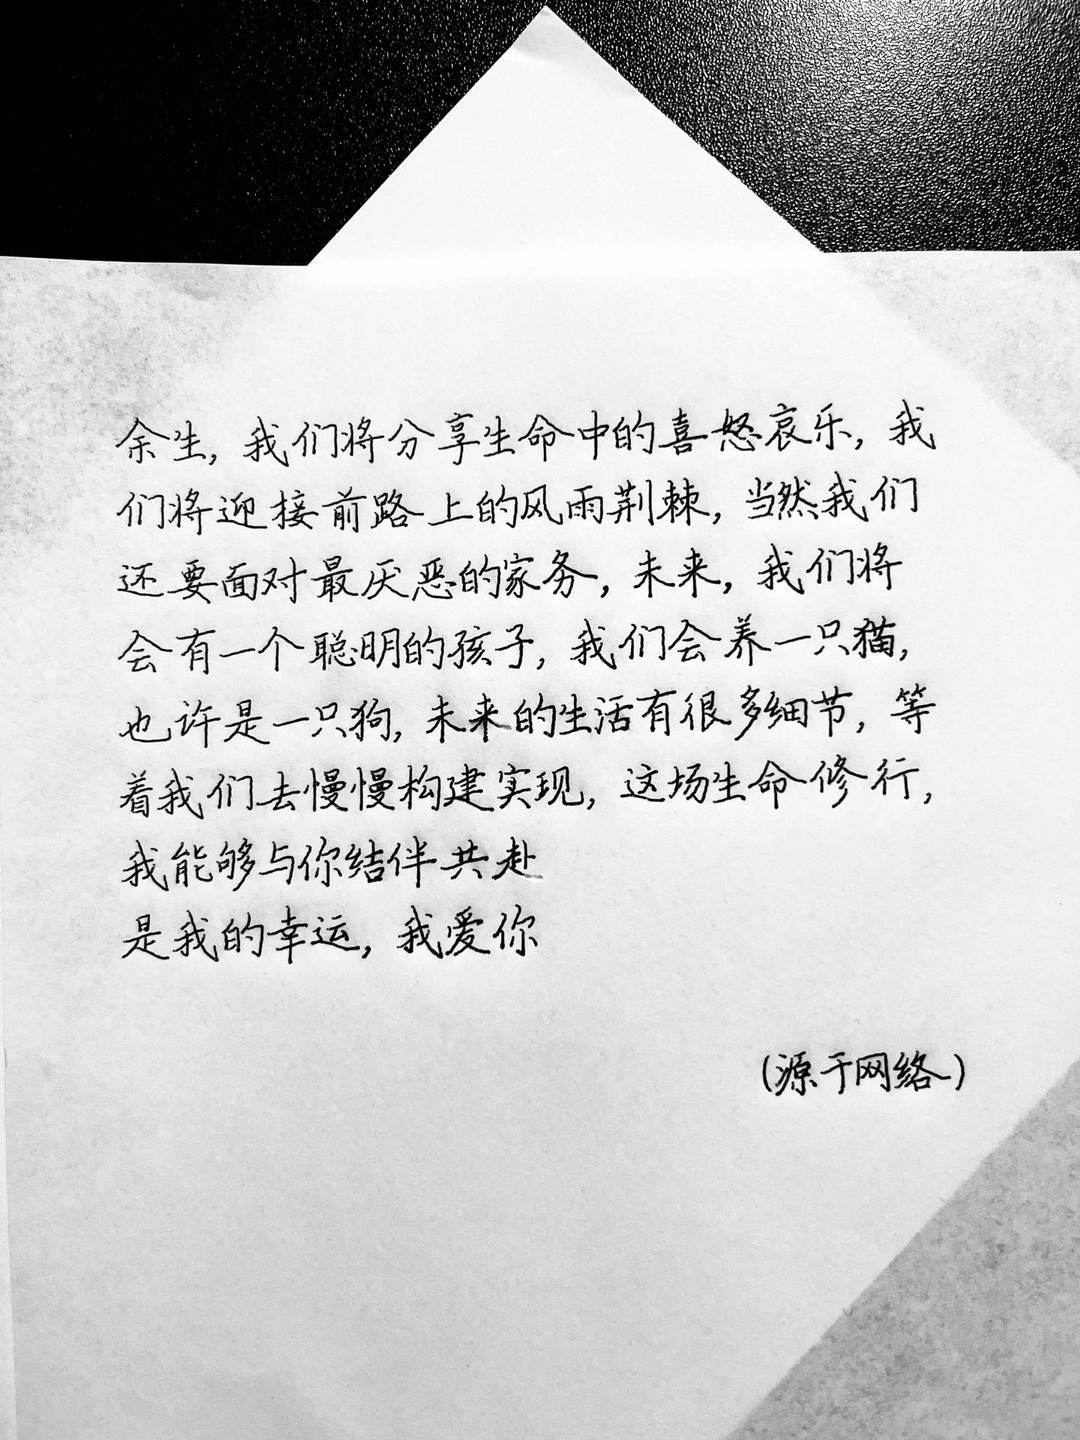 余生，我们将分享生命中的喜怒哀乐，我
们将迎接前路上的风雨荆棘，当然我们
还要面对最厌恶的家务，未来，我们将
会有一个聪明的孩子，我们会养一只猫，
也许是一只狗，未来的生活有很多细节，等
着我们去慢慢构建实现，这场生命修行，
我能够与你结伴共赴
是我的幸运，我爱你
（源于网络）